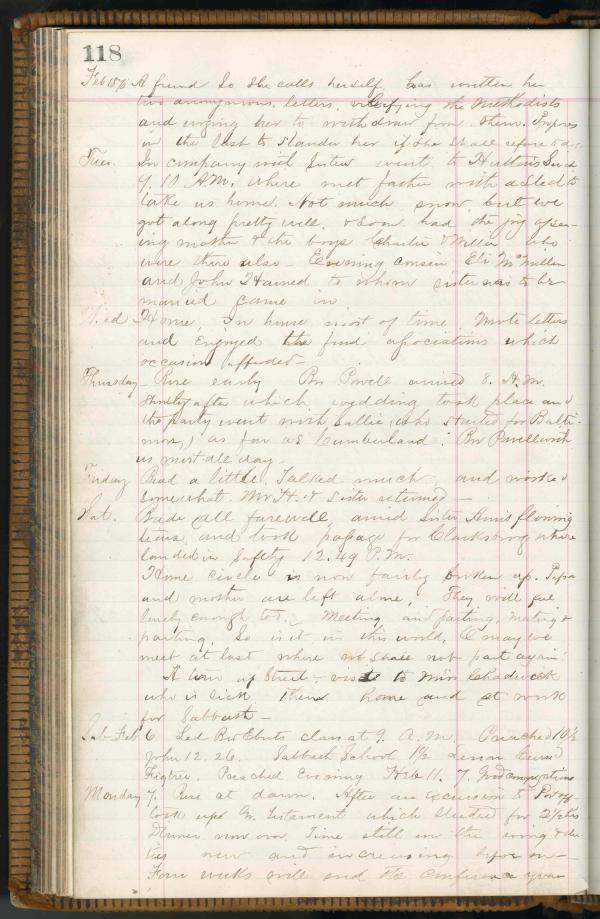 118
Feb 1876 A friend so she calls herself has written her
two anonymous letters, vilifying the Methodists
and urging her to withdraw from them.
in the last to slander her if she shall refuse to do
Tues. In company with Sister went to
9.10 A.M. where met father with a Sled to
take us home. Not much snow but we
got along pretty well, & soon had the joy of see-
ing mother & the boys Charlie & Willie who
were there also - Evening cousin Eli McMillen
and John Hained to whom sister was to be
married came in
Wed Home, in house most of time. Wrote letters
and enjoyed the fine associations which
occasion afforded -
Thursday - Rose early Bro Powell arrived 8. A.M.
shortly after which wedding took place and
the party went with Sallie, (who started for Balti-
more,) as far as Cumberland. Bro Powell with
us most all day.
Friday Read a little, Talked much, and worked
somewhat. Mr H. & Sister returned -
Sat. Bade all farewell, amid Sister Annis flowing
tears, and took passage for Clarksburg where
landed in safety 12.49 P.M.
Home circle is now fairly broken up. Papa
and mother are left alone, They will feel
lonely enough too. Meeting and parting, meeting &
parting, So is it in this world, O may we
meet at last where we shall not part again!
A tour up Street - visit to Miss Chadwick
who is sick then home and at work
for Sabbath -
Sab. Feb 6. Led Bro Ebuts class at 9. A.M. Preached 10½
John 12. 26. Sabbath School 1½ Lesson
Figtree. Preached Evening Heb 11. 7. Good congregations
Monday 7. Rose at dawn. After an excursion to P.O.
took up Gr. Testament which studied for 2½ hrs
Dinner now over. Time still on the wing & du-
ties new and increasing before me -
Four weeks will end the conference year